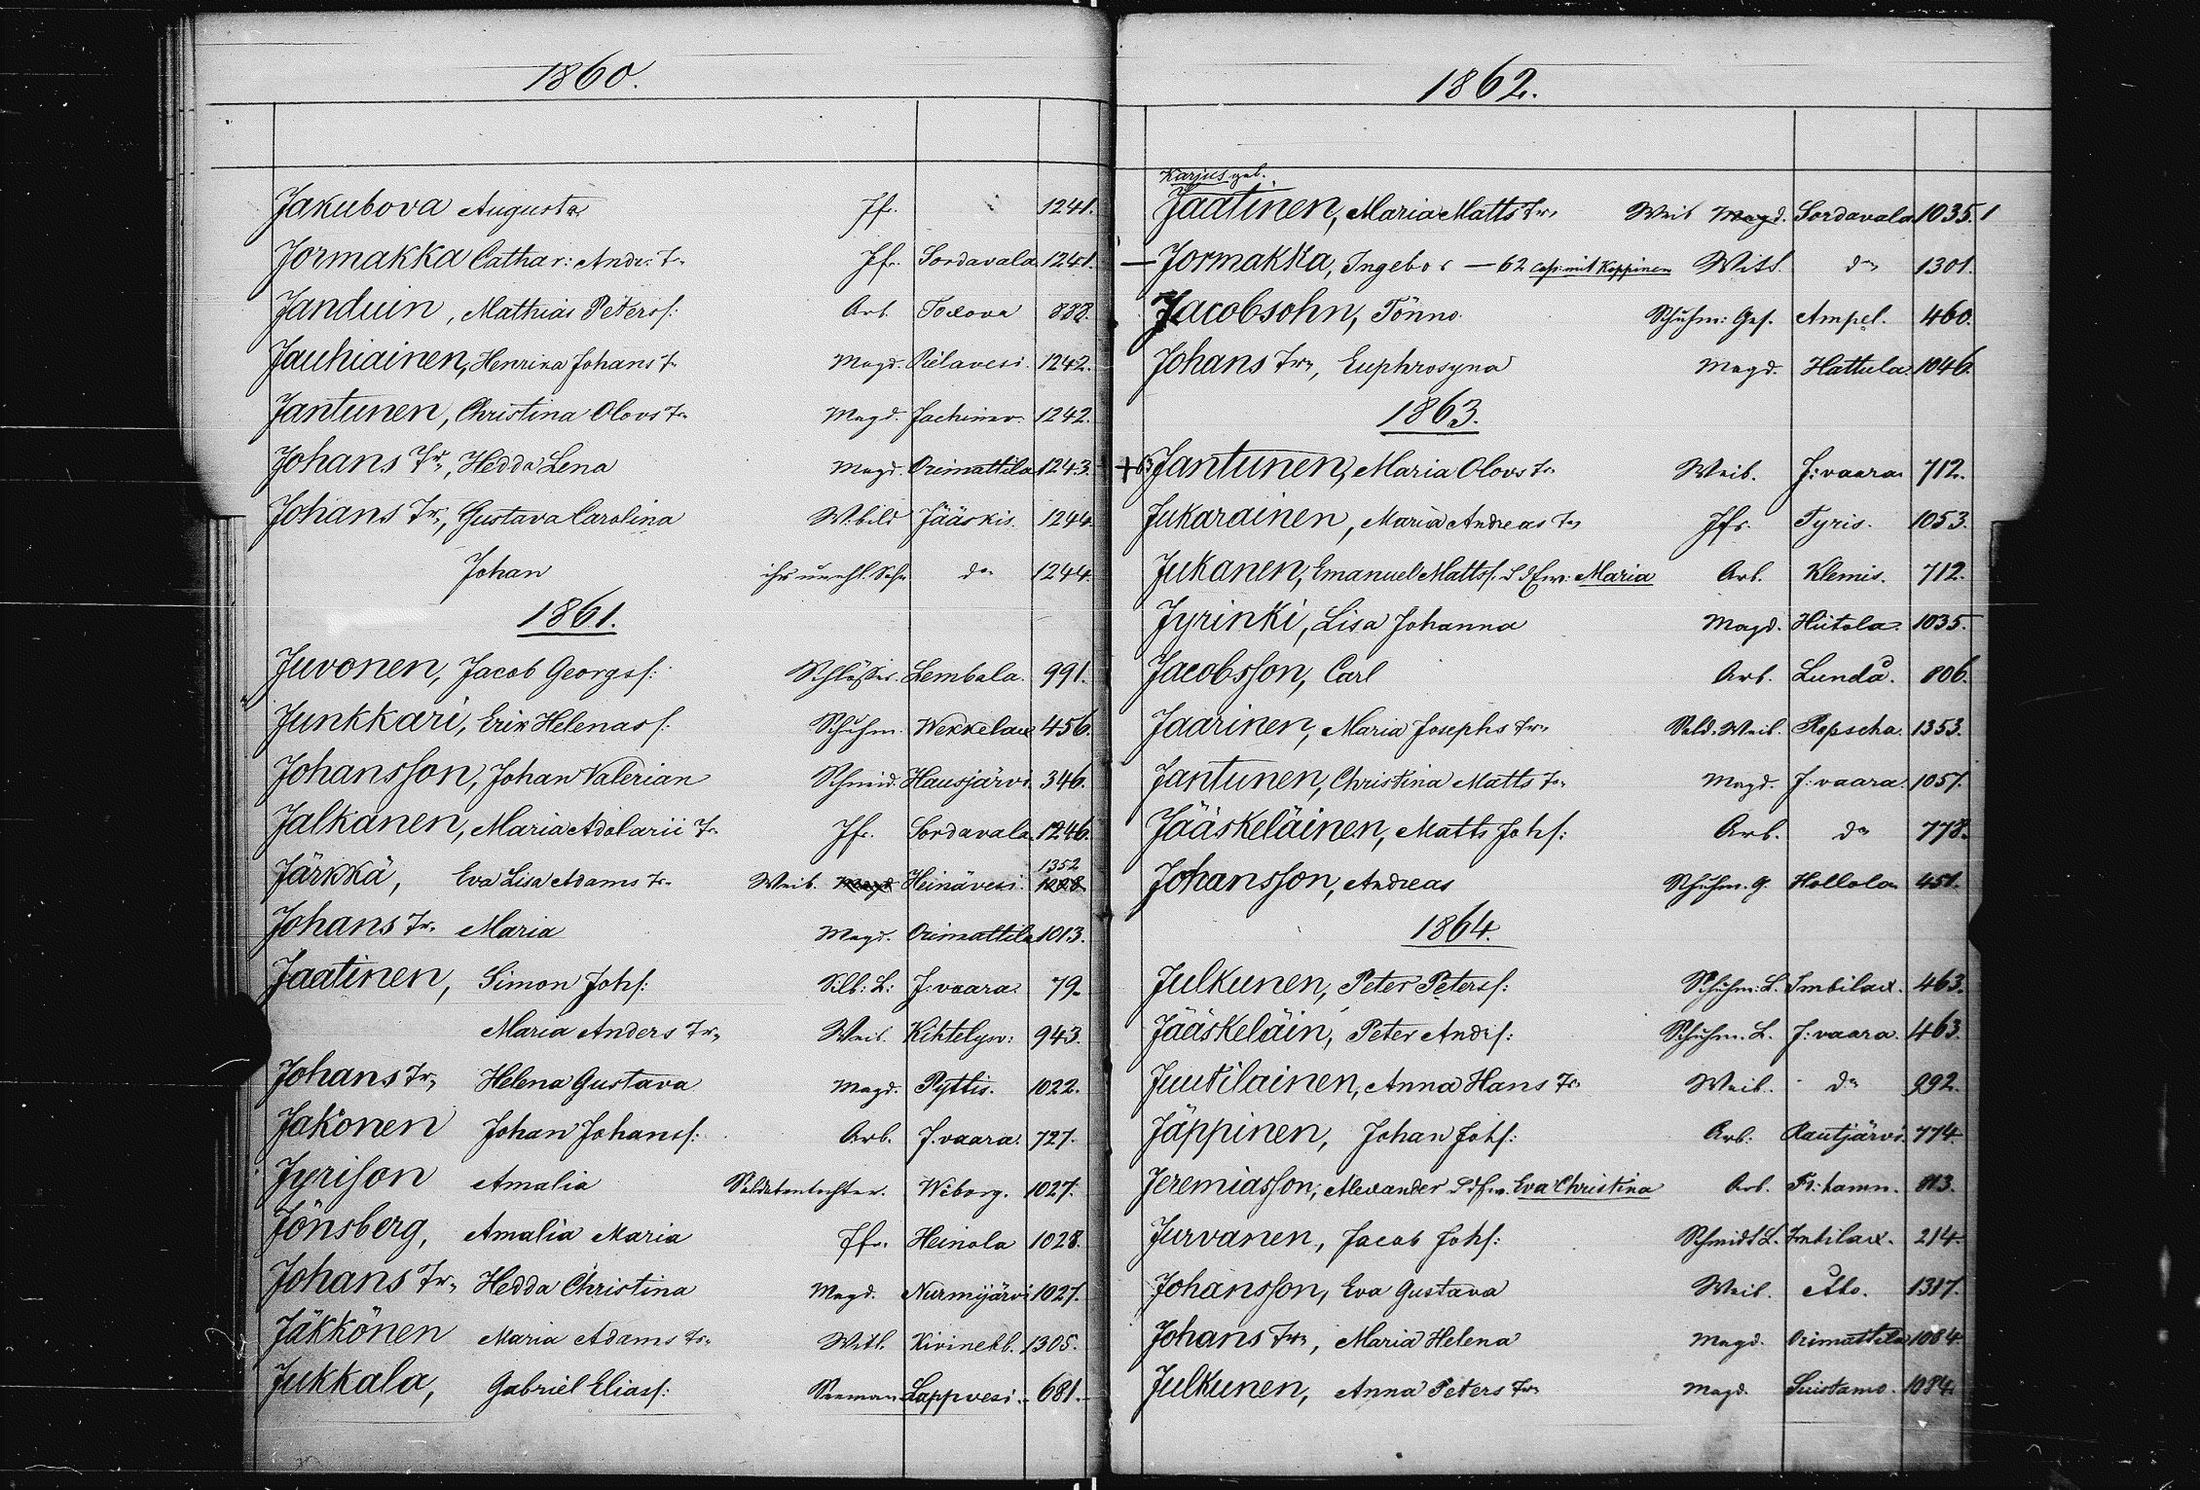 1860.
Jakubova Augusta Jfr. 1241.
Jormakka Cathar: Andr: Tr. Jfr. Sordavala 1241.
Janduin, Mathias Peterss: Arb. Toxova 888.
Jauhiainen, Henrika Johans Tr. Magd. Pielavesi. 1242.
Jantunen, Christina Olovs Tr. Magd. Jachimv. 1242.
Johans Tr., Hedda Lena Magd. Orimattila 1243.
Johans Tr., Gustava Carolina W.bild Jääskis. 1244.
Johan ihr unehl. Sohn do 1244.
1861.
Juvonen, Jacob Georgss: Schlösser. Lembala. 991.
Junkkari, Erik Helenass. Schuhm. Wekkelax 456.
Johansson, Johan Valerian Schmid. Hausjärvi. 346.
Jalkanen, Maria Adolarii Tr. Jfr. Sordavala. 1246.
Järkkä, Eva Lisa Adams Tr. Weib. Magd Heinävesi. 1352
Johans Tr. Maria Magd. Orimattila 1013.
Jaatinen, Simon Johs: Silb: L: J:vaara. 79.
Maria Anders Tr. Weib. Kihtelysv: 943.
Johans Tr., Helena Gustava Magd. Pyttis. 1022.
Jakonen Johan Johanss: Arb. J.vaara. 727.
Jyrison Amalia Soldatentochter. Wiborg. 1027.
Jönsberg, Amalia Maria Jfr. Heinola 1028.
Johans Tr., Hedda Christina Magd. Nurmijärvi 1027.
Jäkkönen Maria Adams Tr. Witt. Kivinebb. 1305.
Jukkala, Gabriel Eliass: Seeman Lappvesi. 681.
1862.
Karjus geb.
Jaatinen, Maria Matts Tr. Weib Magd. Sordavala 1035.
Jormakka, Ingebor — 62 cop: mit Koppinen Witt. do 1301.
Jacobsohn, Tönno. Schuhm: Ges. Ampel. 460.
Johans Tr., Euphrosyna Magd. Hattula. 1046.
1863.
+63 Jantunen, Maria Olovs Tr. Weib. J:vaara 712.
Jukarainen, Maria Andreas Tr. Jfr. Tyris. 1053.
Jukanen, Emanuel Matts. Maria Arb. Klemis. 712.
Jyrinki, Lisa Johanna Magd. Hiitola. 1035.
Jacobsson, Carl Arb. Lundå. 806.
Jaarinen, Maria Josephs Tr. Sold. Weib. Ropscha. 1353.
Jantunen, Christina Matts Tr. Magd. J:vaara. 1057.
Jääskeläinen, Matts Johs: Arb. do 778.
Johansson, Andreas Schuhm. G. Hollola 451.
1864.
Julkunen, Peter Peterss: Schuhm: L. Imbilax. 463.
Jääskeläin, Peter Andrs: Schuhm. L. J:vaara. 463.
Juutilainen, Anna Hans Tr. Weib. do 992.
Jäppinen, Johan Johs: Arb. Rautjärvi. 774.
Jeremiasson, Alexander Eva Christina Arb. Fr:hamn. 813.
Jurvanen, Jacob Johs: Schmidt L. Imbilax. 214.
Johansson, Eva Gustava Weib. Åbo. 1317.
Johans Tr., Maria Helena Magd. Orimattila 1084.
Julkunen, Anna Peters Tr. Magd. Suistamo. 1084.